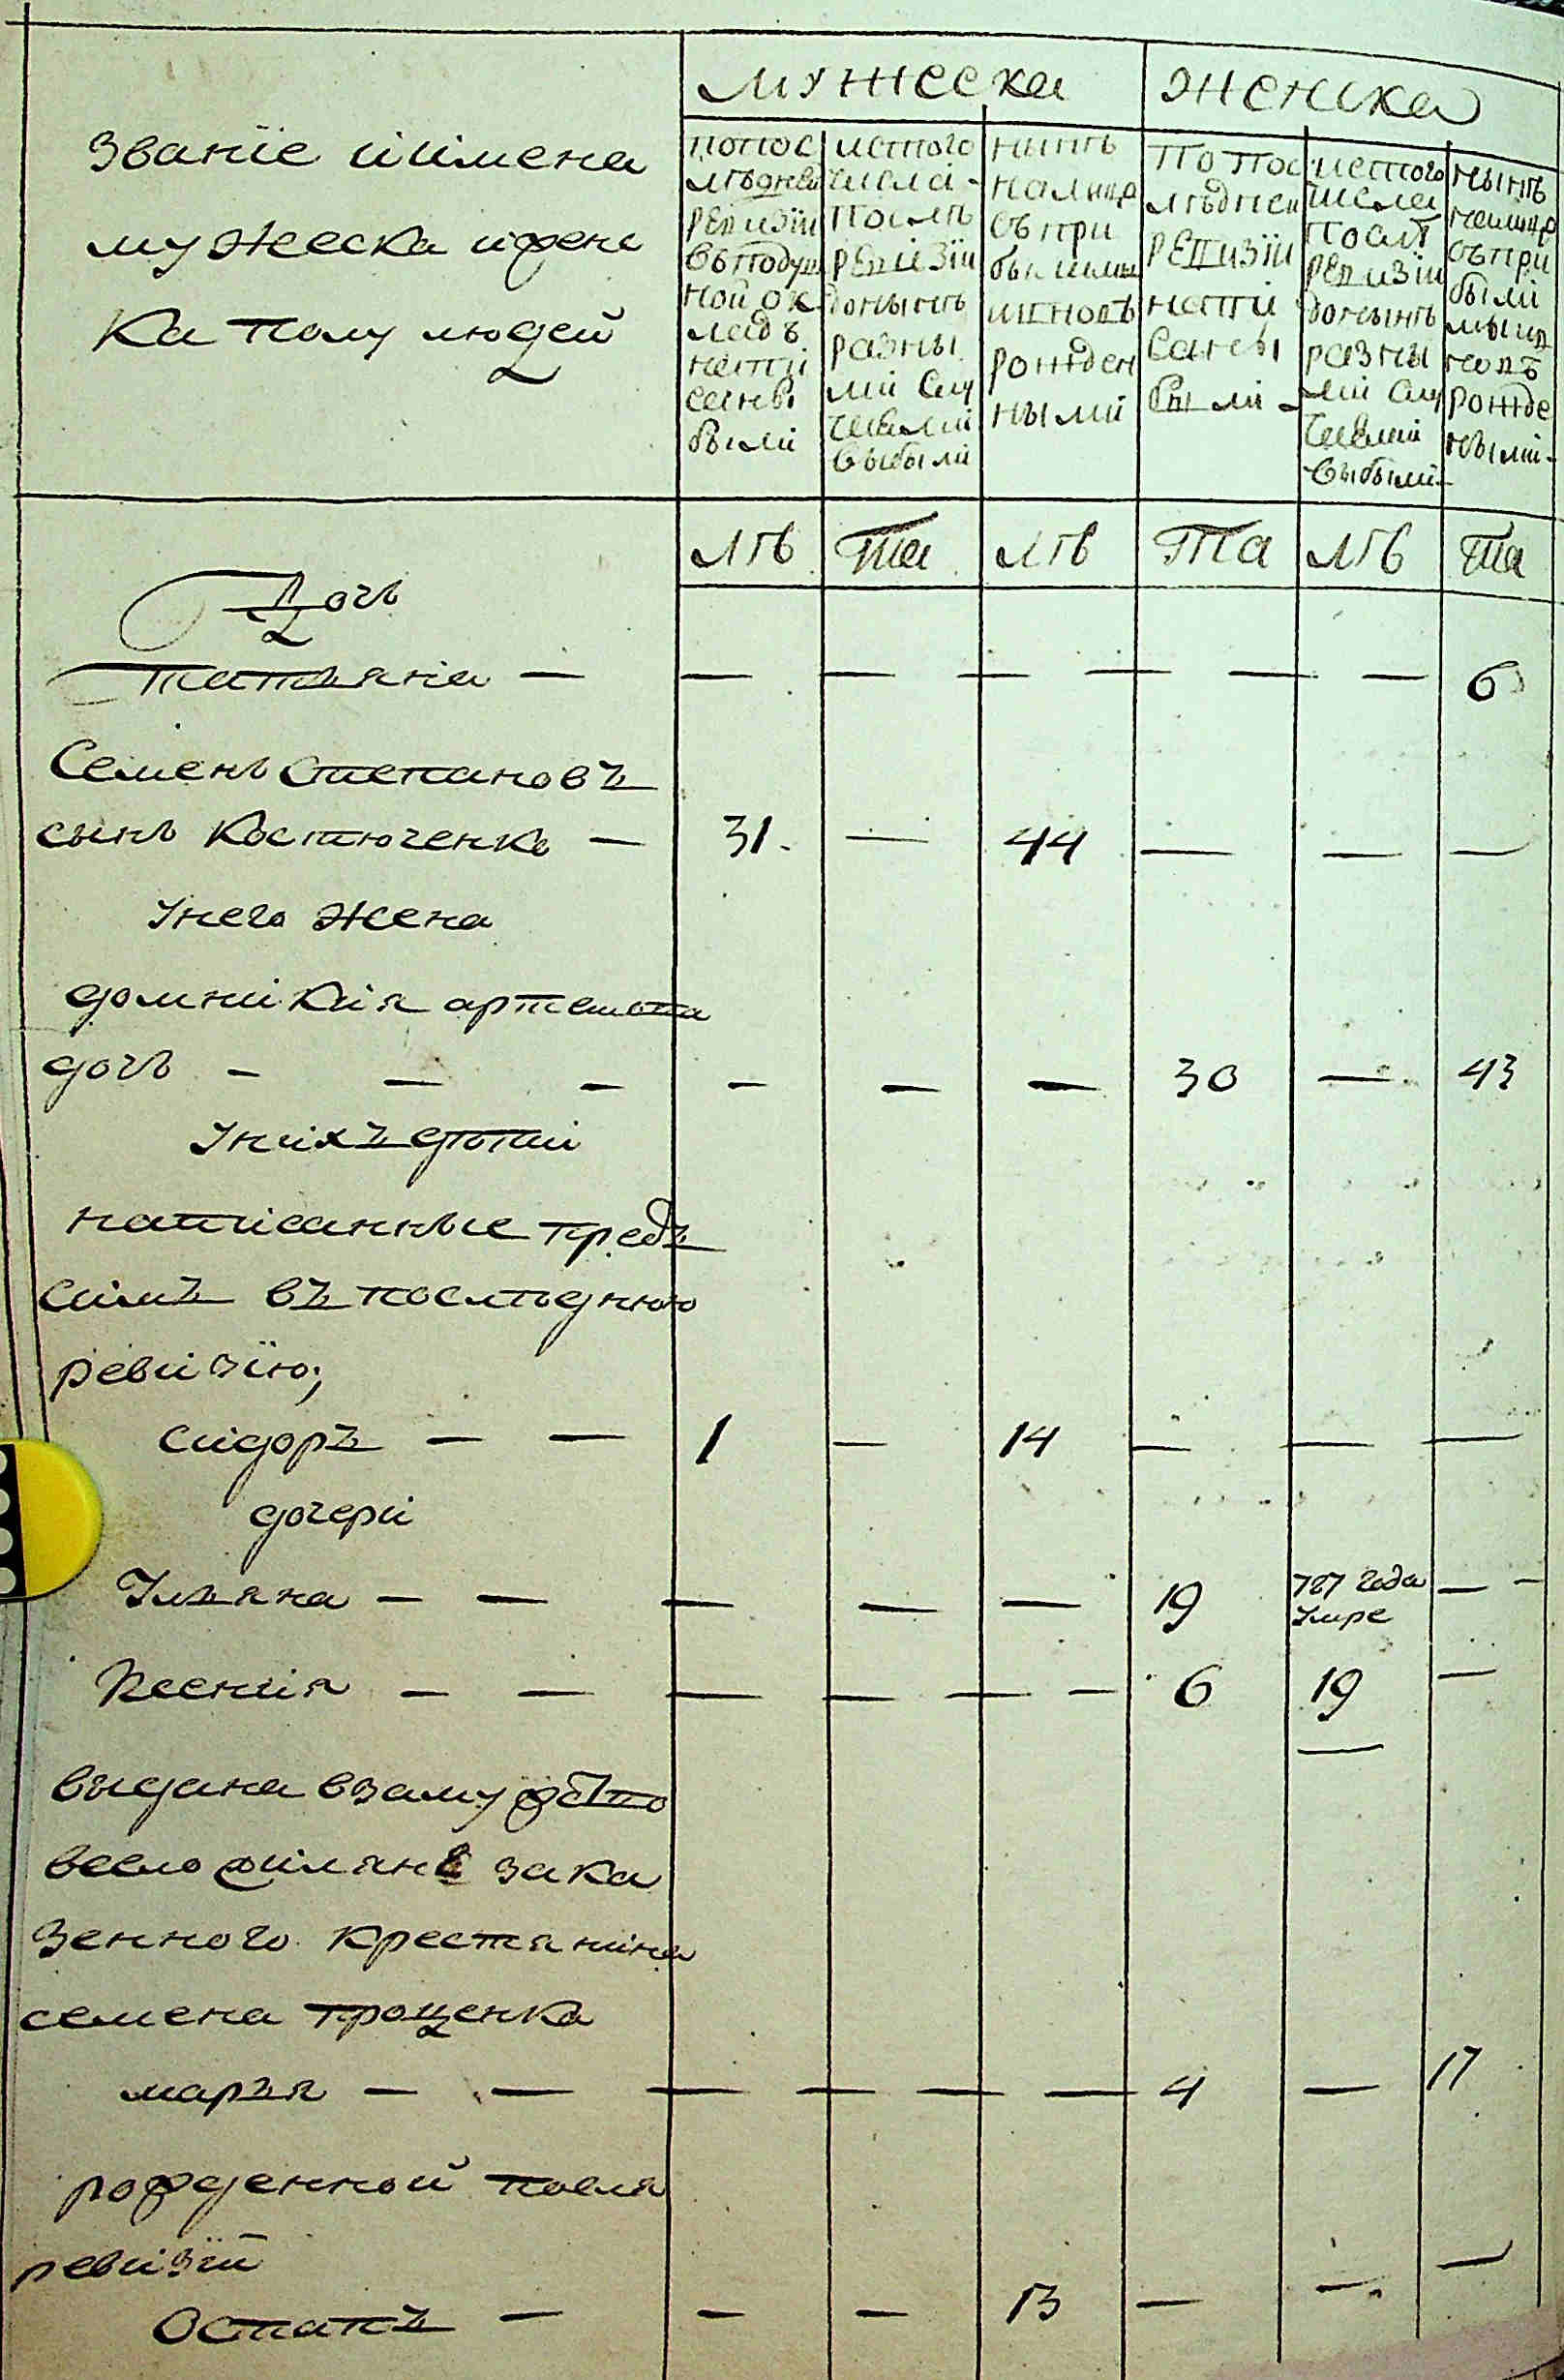 мужеска женска
званїе иимена
мужеска иженс
ка полу людей
попос
лѣдней
ревизїи
вподуш
ной ок
ладъ
напи
саны
были
истого
числа -
послѣ
ревизїи
донынѣ
разны
ми слу
чаями
выбыли
нынѣ
налице
съпри
былыми
ивновъ
рожден
ными
По пос
лѣдней
ревизїи
напи
саны
были -
истого
числа
послѣ
ревизїи
донынѣ
разны
ми слу
чаями
выбыли -
нынѣ
налице
съпри
былы
мыив
новъ
рожде
ными -
лѣ та лѣ та лѣ та
Дочь
татьяна — — — — — — — 6
Семенъ Степановъ
сынъ Костюченко — 31 - — 44 — — —
Унего жена
домникия артемова
дочь — — — — — — 30 — 43
Унихъ дѣти
написанные предъ
симъ въ последнюю
ревизїю;
сидоръ — — 1 — 14 — — —
дочери
Ульяна — — — — — 19 787 года — —
умре
Ксения — — — — — — 6 19 —
—
выдана взамужство
всело филянъ зака
зенного крестянина
семена троценка
марья — — — — — — 4 — 17
рожденной посля
ревизїй
Остапъ — — — 13 — — —